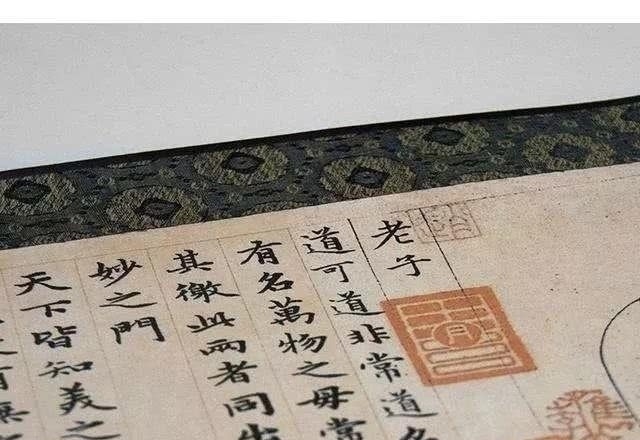 老子
道可道非常道名
有名萬物之母常
其徼此兩者同出
妙之門
天下皆知美之